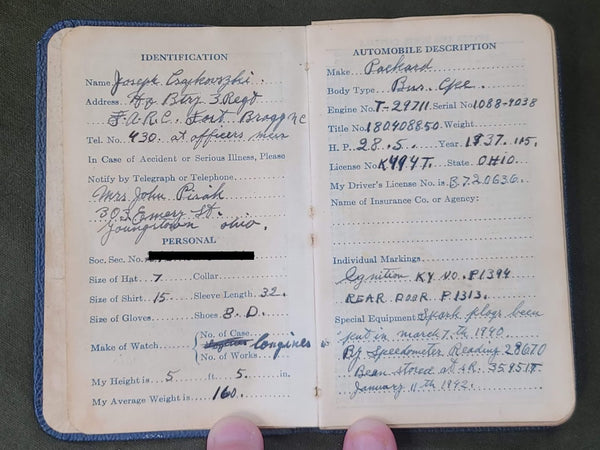 IDENTIFICATION
Name Joseph
Address Hq Btry 3 Regt
F.A.R.C. Fort Bragg N C
Tel. No. 430. at officers mess
In Case of Accident or Serious Illness, Please
Notify by Telegraph or Telephone
Mrs John
303 Emery St.
Youngstown ohio.
PERSONAL
Soc. Sec. No.
Size of Hat 7 Collar
Size of Shirt 15 Sleeve Length 32.
Size of Gloves Shoes 8. D.
No. of Case
Make of Watch longines
No. of Works
My Height is 5 ft. 5. in.
My Average Weight is 160.
AUTOMOBILE DESCRIPTION
Make Packard
Body Type Bus. Cpe.
Engine No. T-29711 Serial No 1088-9038
Title No. 180408850 Weight
H. P. 28.5. Year 1937. 115.
License No. K494T. State OHIO.
My Driver's License No. is B720636.
Name of Insurance Co. or Agency:
Individual Markings
Ignition KY NO. P1394
REAR DOOR P.1313.
Special Equipment Spark plogs been
put in march 7.th 1940
By Speedometer Reading 28670
Bean stored at 35951
January 11th 1942.